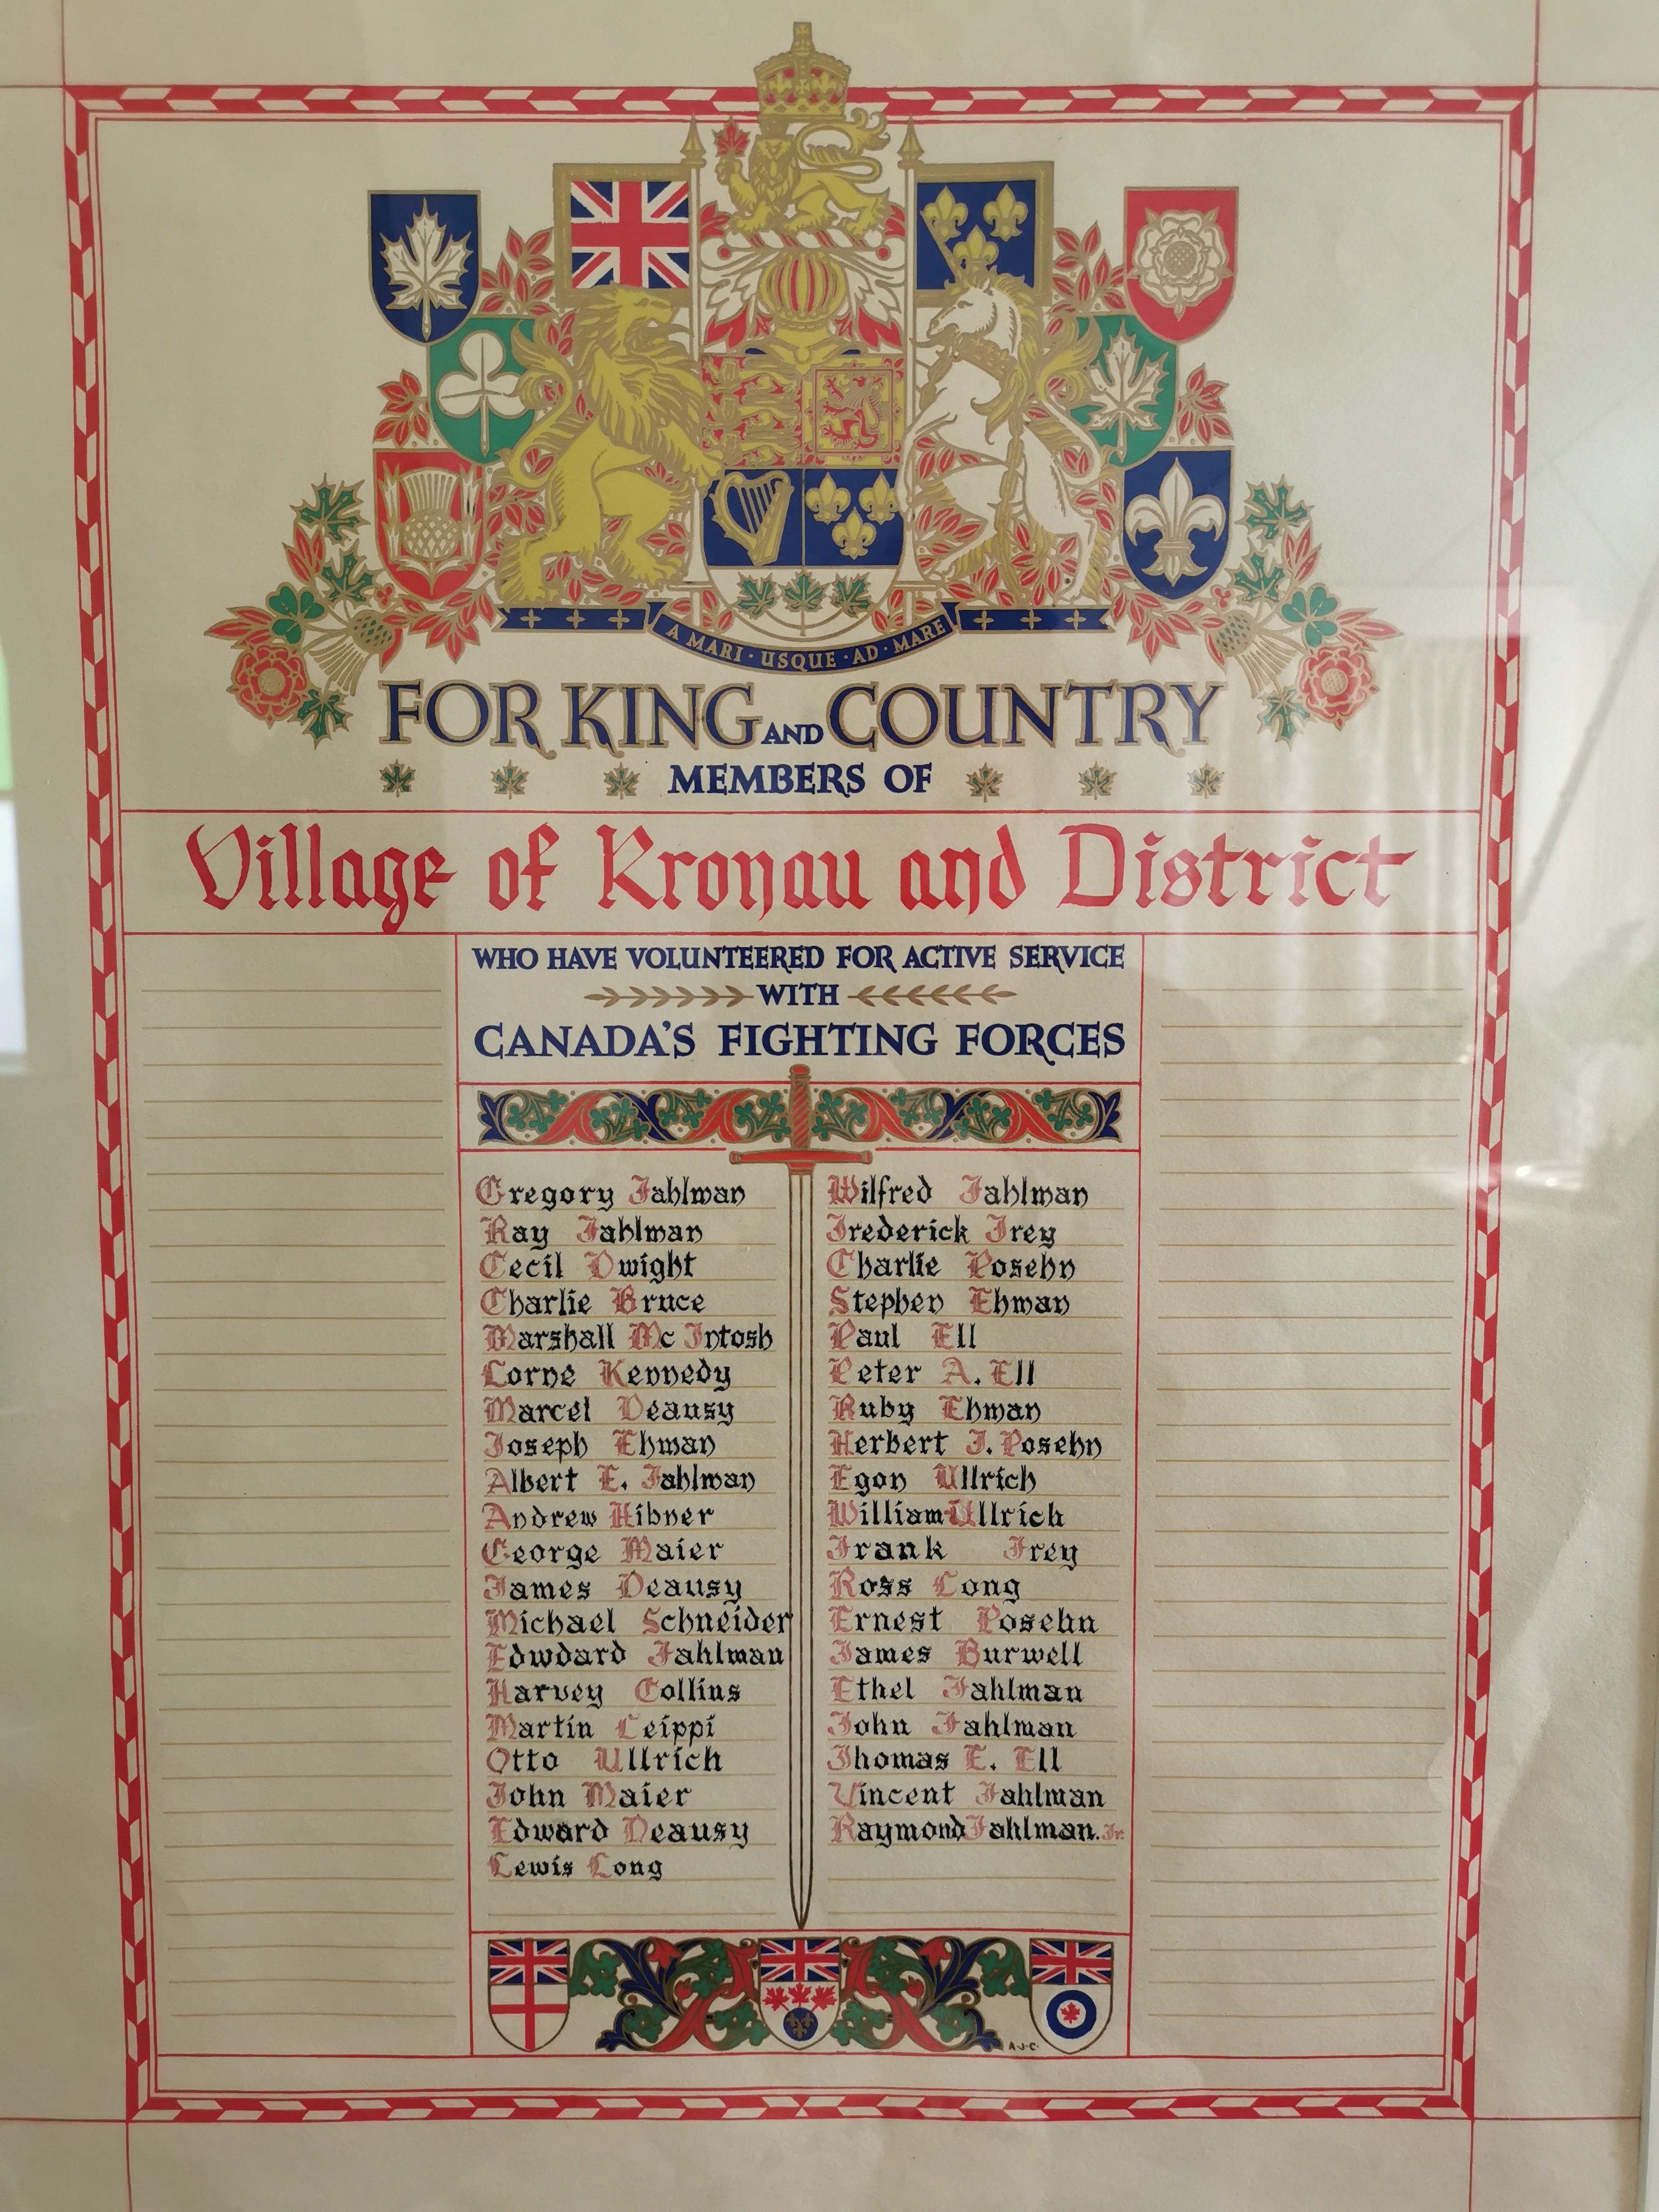 A MARI · USQUE · AD · MARE
FOR KING AND COUNTRY
MEMBERS OF
Village of Kronau and District
WHO HAVE VOLUNTEERED FOR ACTIVE SERVICE
WITH
CANADA'S FIGHTING FORCES
Gregory Fahlman
Ray Fahlman
Cecil Dwight
Charlie Bruce
Marshall Mc Intosh
Lorne Kennedy
Marcel Deausy
Joseph Ehman
Albert E. Fahlman
Andrew Hibner
George Maier
James Deausy
Michael Schneider
Edwdard Fahlman
Harvey Collins
Martin Leippi
Otto Ullrich
John Maier
Edward Deausy
Lewis Long
Wilfred Fahlman
Frederick Frey
Charlie Posehn
Stephen Ehman
Paul Ell
Peter A. Ell
Ruby Ehman
Herbert J. Posehn
Egon Ullrich
William Ullrich
Frank Frey
Ross Long
Ernest Posehn
James Burwell
Ethel Fahlman
John Fahlman
Thomas E. Ell
Vincent Fahlman
Raymond Fahlman. Jr.
A·J·C·